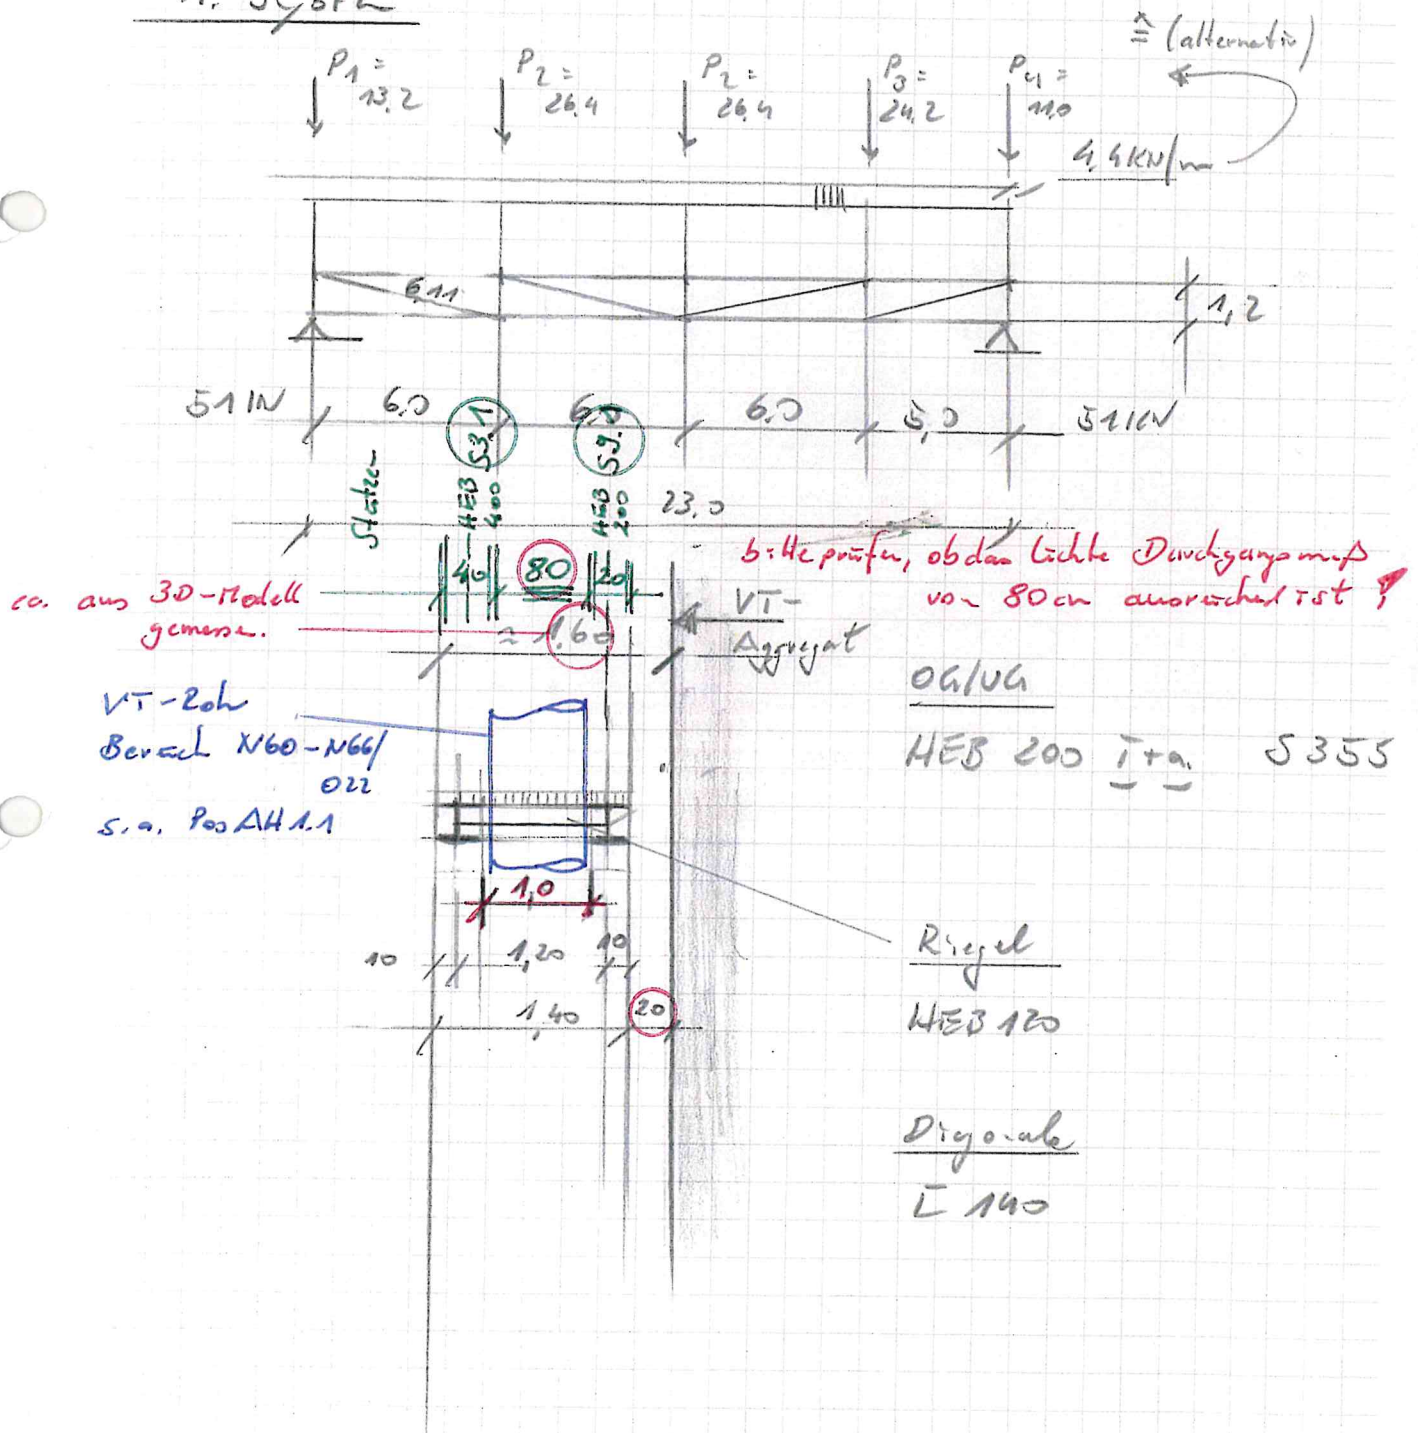 ≙ (alternativ)
P1 =
13,2
P2 =
26,4
P2 =
26,4
P3 =
24,2
P4 =
11,0
4,4 KN/m
6,11
1,2
51 KN
6,0
6,0
6,0
5,0
51 KN
S3.1
S9.1
Stützen
HEB
400
HEB
200
23,0
40
80
20
bitte prüfen, ob das lichte Durchgangsmaß
von 80cm ausreichend ist !
ca. aus 3D-Modell
gemessen.
≈ 1,60
VT-
Aggregat
OG/UG
HEB 200 S355
VT-Rohr
Bereich N60-N66/
022
s.a. Pos AH 1.1
1,0
10
1,20
10
1,40
20
Riegel
HEB 120
Diagonale
140